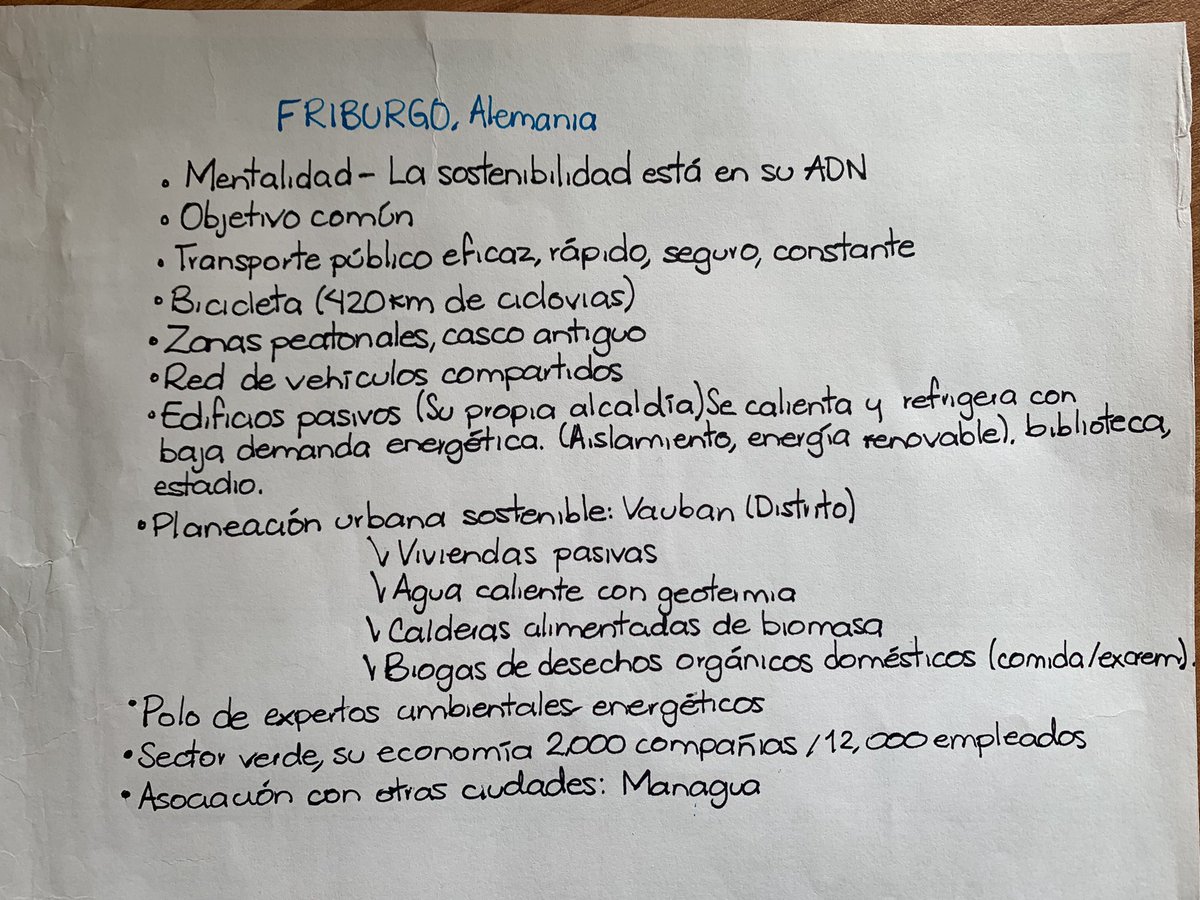 FRIBURGO, Alemania
• Mentalidad - La sostenibilidad está en su ADN
• Objetivo común
• Transporte público eficaz, rápido, seguro, constante
• Bicicleta (420 km de ciclovias)
• Zonas peatonales, casco antiguo
• Red de vehículos compartidos
• Edificios pasivos (Su propia alcaldía) Se calienta y refrigera con
baja demanda energética. (Aislamiento, energía renovable). biblioteca,
estadio.
• Planeación urbana sostenible: Vauban (Distrito)
↘ Viviendas pasivas
↘ Agua caliente con geotermia
↘ Calderas alimentadas de biomasa
↘ Biogas de desechos orgánicos domésticos (comida/excrem).
• Polo de expertos ambientales energéticos
• Sector verde, su economía 2,000 compañias / 12,000 empleados
• Asociación con otras ciudades: Managua